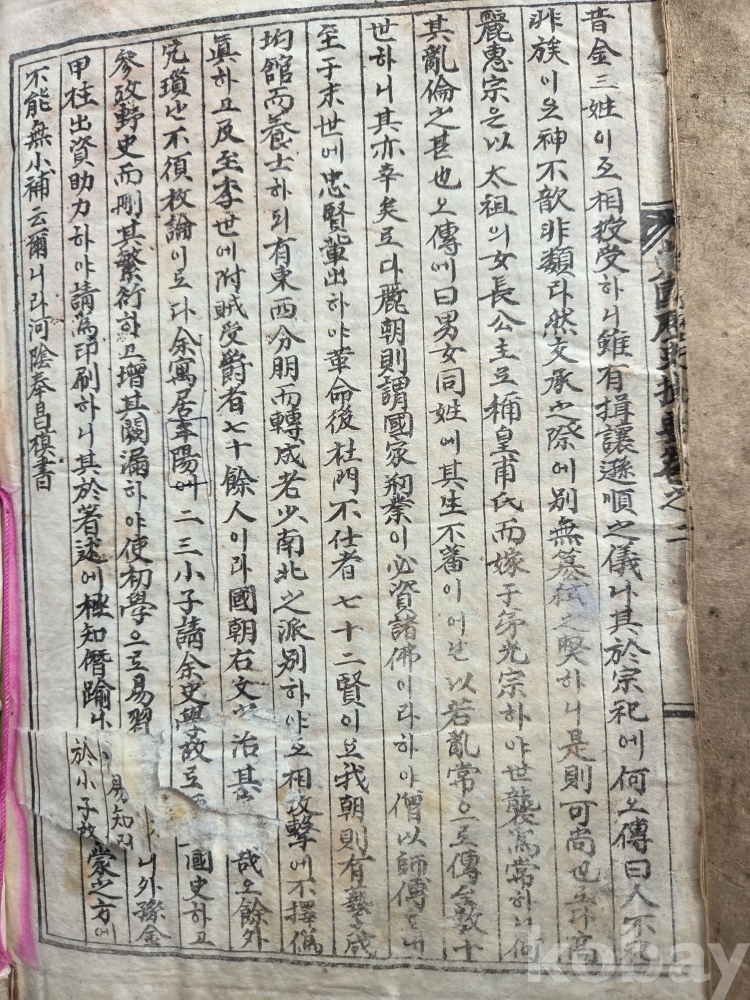 昔金三姓이互相授受하니雖有揖讓遜順之儀나其於宗祀에何오傳曰人不祀
非族이오神不歆非類라然交承之際에別無簒弑之　하니是則可尚也로다高
麗惠宗은以太祖의女長公主로稱皇甫氏而嫁于弟光宗하야世襲爲常하니何
其亂倫之甚也오傳에曰男女同姓에其生不蕃이어날以若亂常으로傳　數十
世하니其亦幸矣로다麗朝則謂國家刱業이必資諸佛이라하야僧以師傳
至于末世에忠賢輩出하야革命後杜門不仕者七十二賢이오我朝則有　成
均館而養士하되有東西分朋而轉成老少南北之派別하야互相攻擊에不擇僞
眞하고及至李世에附賊受爵者七十餘人이라國朝右文以治其　哉오餘外
冗瑣난不須枚論이로다余寓居　陽에二三小子請余史學故로　國史하고
參攷野史而刪其繁衍하고增其闕漏하야使初學으로易習　니外孫金
甲柱出資助力하야請爲印刷하니其於著述에極知僭踰나　易知
不能無小補云爾니라河陰奉昌模書　於小子　蒙之方에
kobay